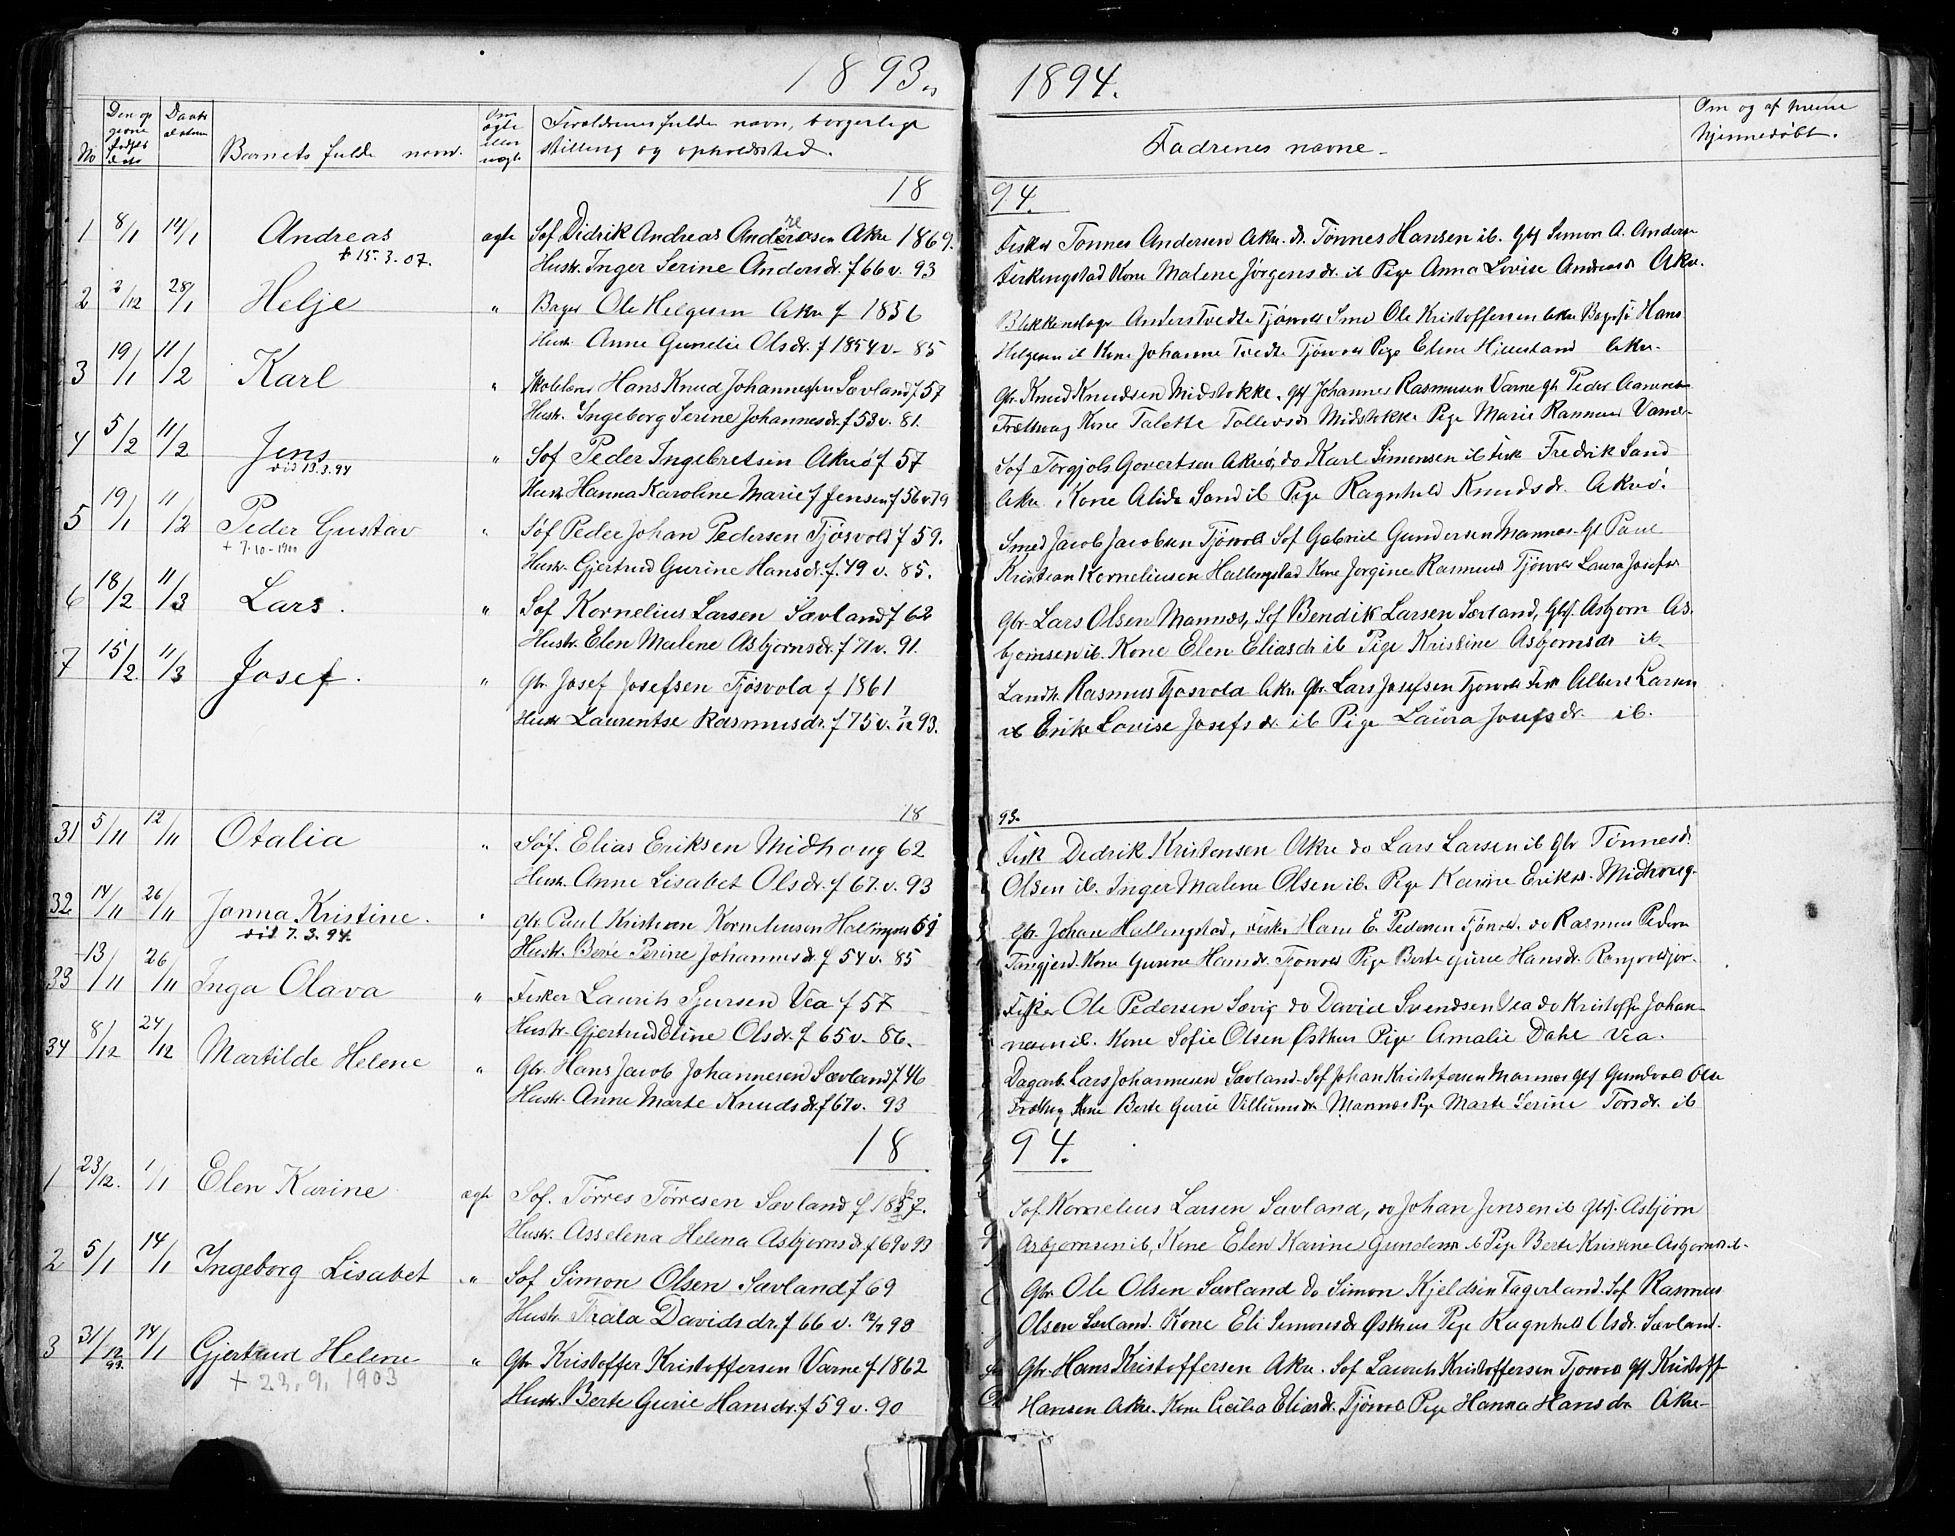 1893.
1894.
No
Barnets fulde navn.
Forældrenes fulde navn, borgerlige
stilling og opholdssted.
Fadrenes navne.
Om og af hvem
hjemmedøbt.
18
94.
1 8/1 14/1 Andreas ægte Søf Didrik Andreas Andreasen Akre 1869.
† 15.3.07.
Hustr. Inger Serine Andersdr. f 66 v. 93
Fisker Tønnes Andersen Akre. do. Tønnes Hansen ib. Gbf Simon A. Anders
Ferkingstad Kone Malene Jørgensdr. ib Pige Anna Lovise Andreasdr Akre.
2 2/12 28/1 Helje " Bager Ole Helgesen Akre f 1856
Hustr. Anne Gurelie Olsdr. f 1854 v. 85
Blikkenslager Anders Tvedte Tjøsvol Smed Ole Kristoffersen Akre Hans
Helgesen ib Kone Johanne Tvedte Tjøsvol Pige Eline Akre.
3 19/1 11/2 Karl " Skolelærer Hans Knud Johannessen Sævland f 57
Hustr. Ingeborg Serine Johannesdr. f 53 v. 81.
Gbr. Knud Knudsen Midstokke. Gbf Johannes Rasmusen Varne Gbr Peder
Kone Talette Tollevsdr Midstokke Pige Marie Rasmusdr Varne
4 5/2 11/2 Jens " Søf Peder Ingebretsen Akreø f 57
død 13.3.94
Hustr. Hanna Karoline Marie f Jensen f 56 v. 79
Søf Torgjols Govertsen Akreø, do Karl Simonsen ib Fisk Fredrik Sand
Akre. Kone Alida Sand ib Pige Ragnhild Knudsdr. Akreø.
5 19/1 11/2 Peder Gustav " Søf Peder Johan Pedersen Tjøsvold f 59.
† 7.10-1900
Hustr. Gjertrud Gurine Hansdr. f. 49 v. 85.
Smed Jacob Jacobsen Tjøsvol Søf Gabriel Gundersen Mannes. Gf Paul
Kristian Korneliusen Hallingstad Kone Jørgine Rasmusdr Tjøsvol Laura Josefsdr
6 18/2 11/3 Lars. " Søf Kornelius Larsen Sævland f 62
Hustr. Elen Malene Asbjørnsdr. f 71 v. 91.
Gbr. Lars Olsen Mannes, Søf Bendik Larsen Sævland, Gbf. Asbjørn As-
bjørnsen ib. Kone Elen Eliasdr ib Pige Kristine Asbjørnsdr ib.
7 15/2 11/3 Josef. " Gbr. Josef Josefsen Tjøsvola f 1861
Hustr Laurentse Rasmusdr. f 75 v. 7/12 93.
Landh. Rasmus Tjøsvola Akre Gbr. Lars Josefsen Tjøsvol Fisk Albert Larsen
ib Erike Lovise Josefsdr. ib Pige Laura Josefsdr. ib.
18
93.
31 5/11 12/11 Otalia " Søf. Elias Eriksen Midhoug 62
Hustr. Anne Lisabet Olsdr. f 67. v. 93
Fisk Dedrik Kristensen Akre do Lars Larsen ib Gbr Tønnesdr
Olsen ib. Inger Malene Olsen ib. Pige Karine Eriksdr. Midhoug.
32 14/11 26/11 Janna Kristine. " Gbr. Paul Kristian Korneliusen 59
død 7.3.94.
Hustr. Berte Serine Johannesdr f 54 v. 85
Gbr. Johan Hallingstad, Fisker Hans E. Pedersen Tjøsvol. do Rasmus Peders
Tangjerd. Kone Gurine Hansdr. Tjøsvol Pige Berte Gurie Hansdr.
33 13/11 26/11 Inga Olava " Fisker Laurits Sjursen Vea f 57
Hustr. Gjertrud Eline Olsdr. f 65 v. 86.
Fisker Ole Pedersen Sævig do David Svendsen Vea do Kristoffer Johan-
nesen ib. Kone Sofie Olsen Østhus Pige Amalie Dahl Vea.
34 8/12 24/12 Martilde Helene " Gbr. Hans Jacob Johannesen Sævland f 46
Hustr. Anne Marte Knudsdr. f 67 v. 93
Dagarb. Lars Johannesen Sævland. Søf Johan Kristofersen Mannes Gbf Gundvol Olse
Kone Berte Gurie Villumsdr Mannes Pige Marte Serine Torsdr. ib
18
94.
1 23/12. 1/1 Elen Karine ægte Søf. Tørres Tørresen Sævland f 1867.
Hustr. Asselena Helena Asbjørnsdr. f 69 v 93
Søf. Kornelius Larsen Sævland, do Johan Jensen ib Gbf. Asbjørn
Asbjørnsen ib, Kone Elen Karine Gundersdr ib Pige Berte Kristine Asbjørnsdr. ib.
2 5/1 14/1 Ingeborg Lisabet " Søf Simon Olsen Sævland f 69
Hustr. Thala Davidsdr. f 66 v. 93
Gbr. Ole Olsen Sævland do Simon Kjeldsen Fagerland. Søf Rasmus
Olsen Sævland. Kone Eli Simonsdr Østhus Pige Ragnhild Olsdr. Sævland.
3 31/12 93. 14/1 Gjertrud Helene " Gbr. Kristoffer Kristoffersen Varne f 1862
† 23.9.1903
Hustr. Berte Gurie Hansdr. f 59 v. 90
Gbr. Hans Kristoffersen Akre. Søf Laurits Kristoffersen Tjøsvol Gbf Kristoff
Hansen Akre. Kone Cicilia Eliasdr. Tjøsvol Pige Hanna Hansdr Akre.